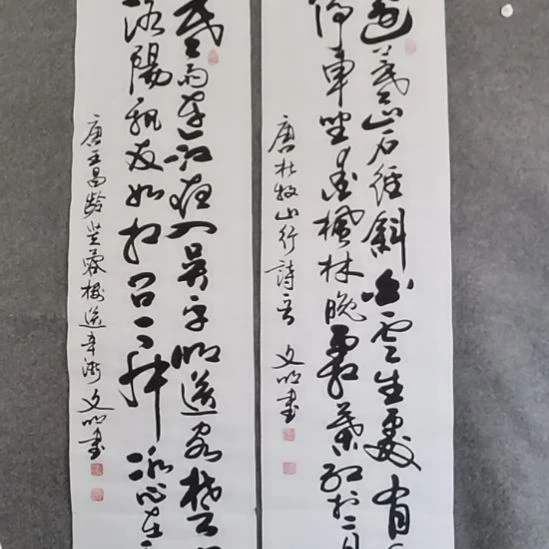 遠上寒山石径斜白雲生處有
停車坐愛楓林晚霜葉紅於二月
唐杜牧山行詩一首 文明書
寒雨連江夜入吳平明送客楚
洛陽親友如相問一片冰心在
唐王昌齡芙蓉樓送辛漸 文明書